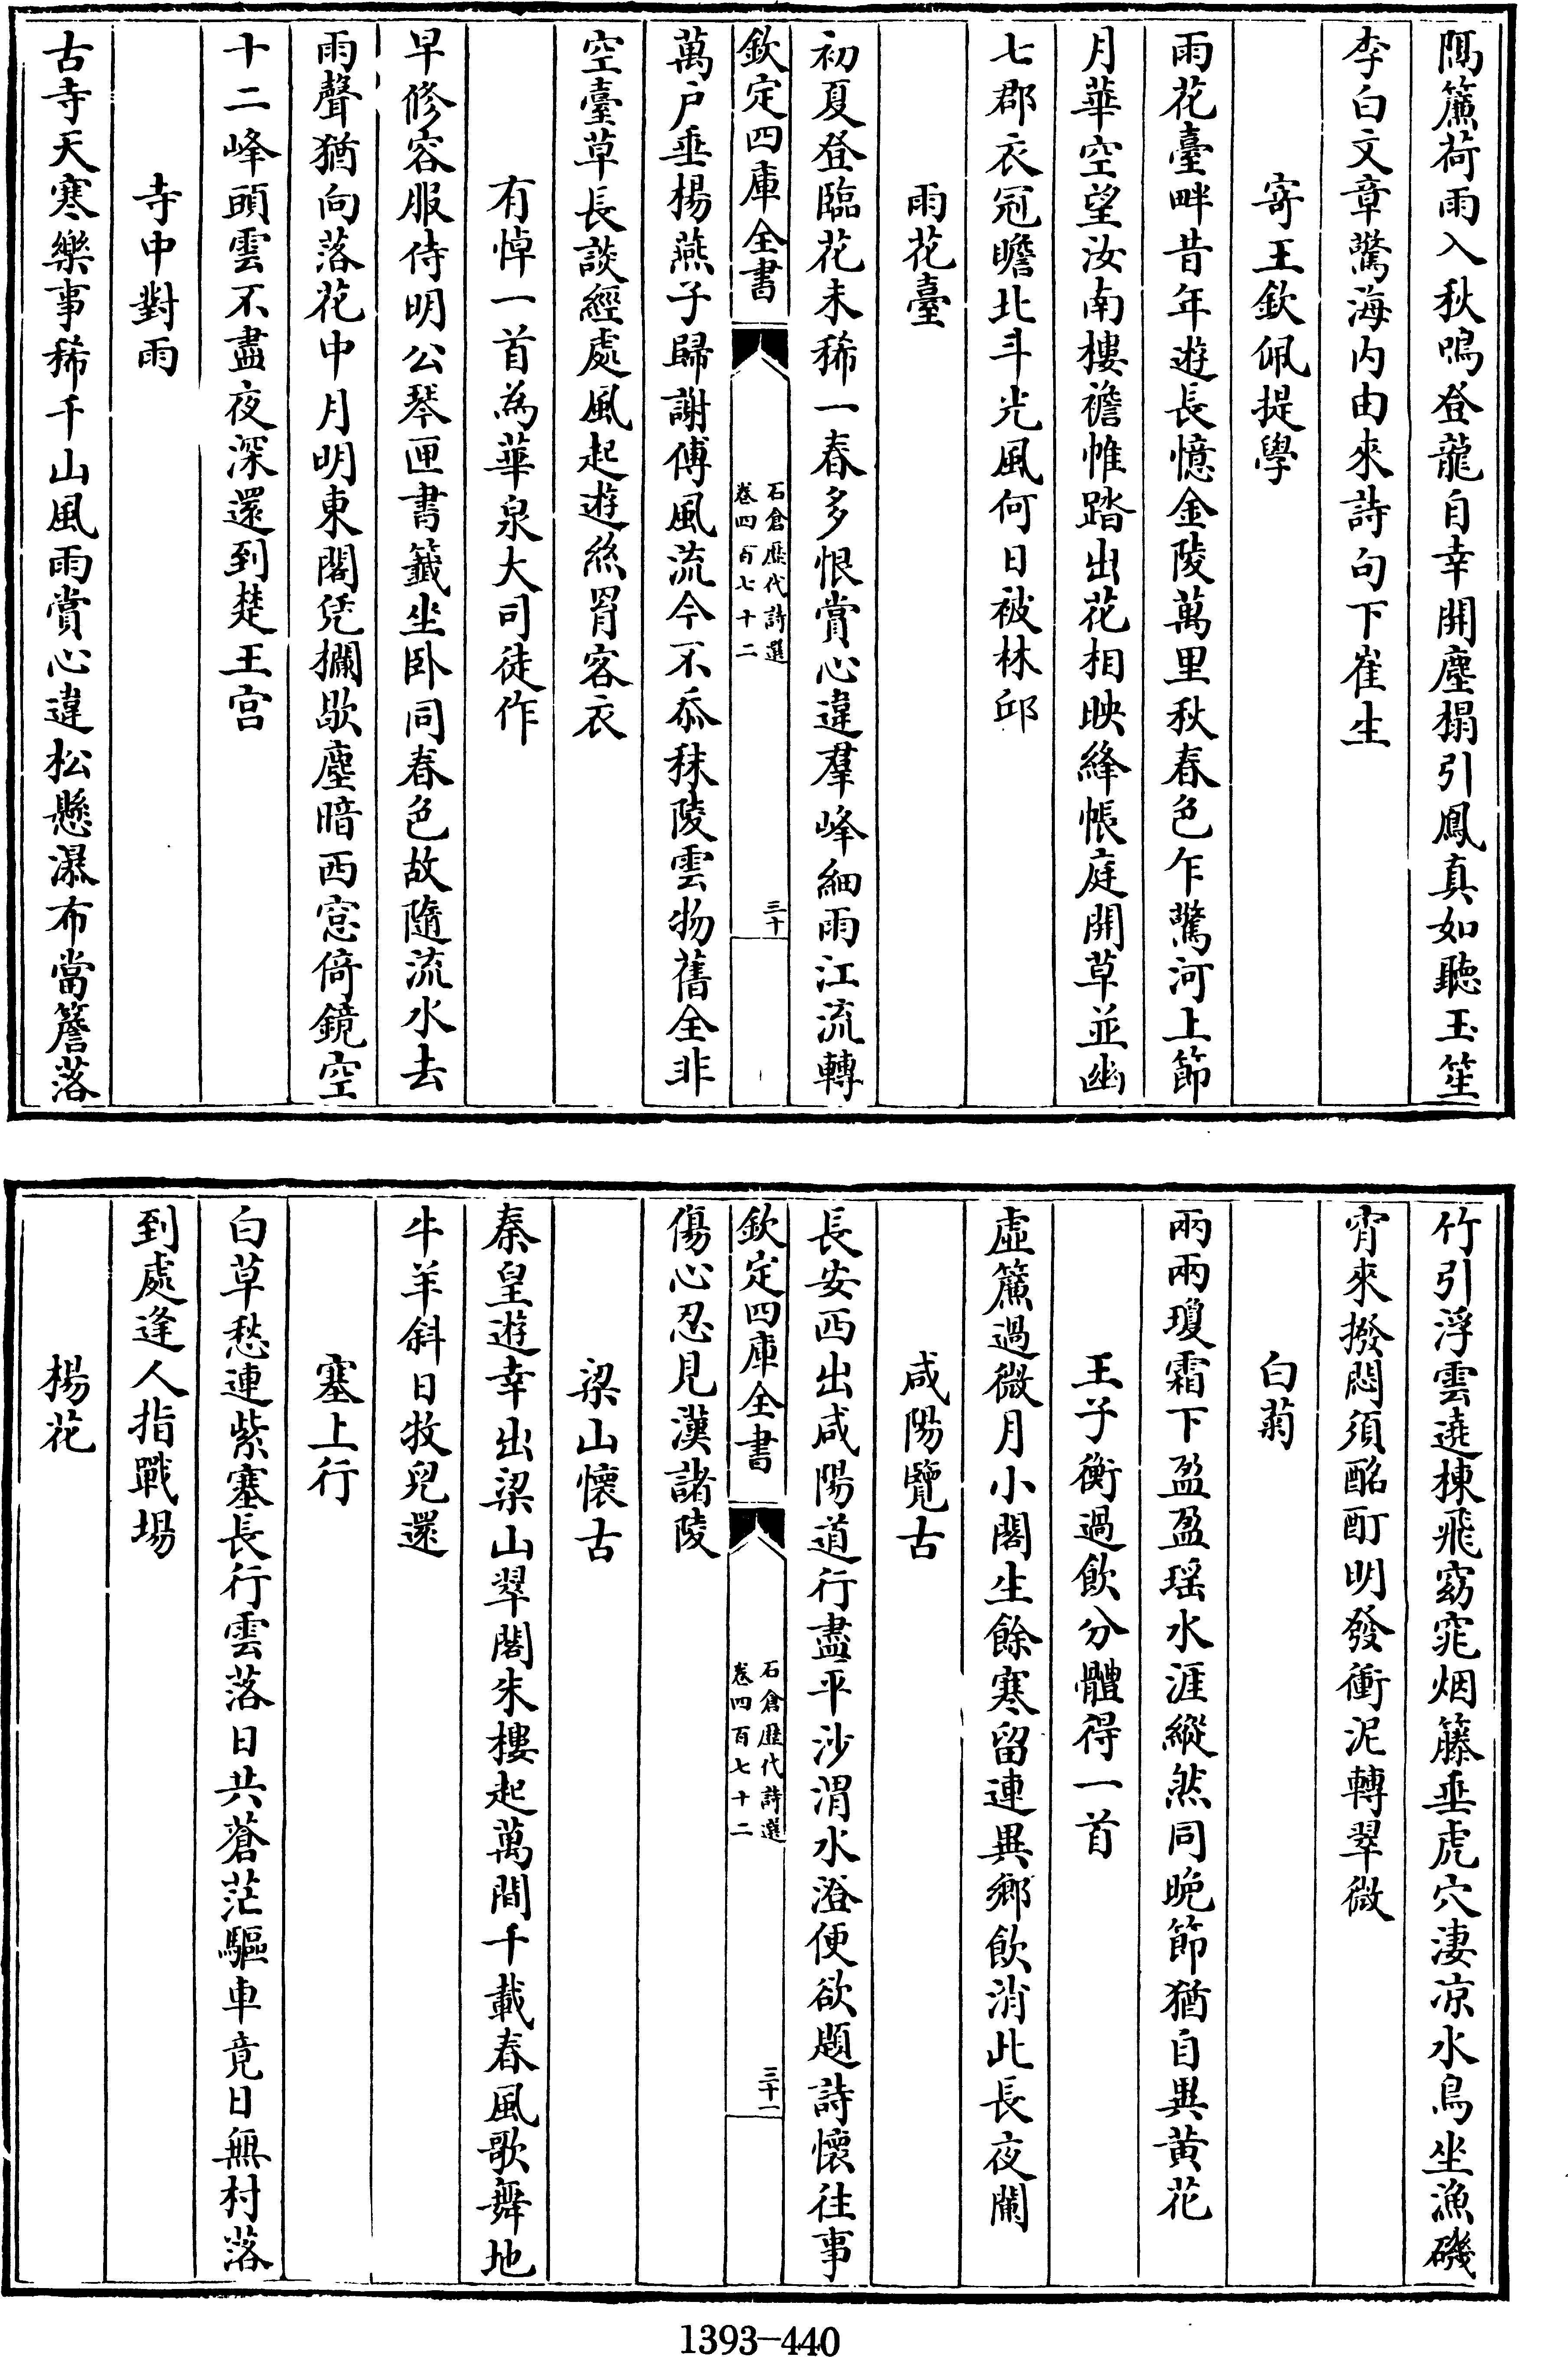 隔簾荷雨入秋鳴登龍自幸開塵榻引鳳真如聽玉笙
李白文章驚海内由來詩句下崔生
寄王欽佩提學
雨花臺畔昔年遊長憶金陵萬里秋春色乍驚河上節
月華空望汝南樓襜帷踏出花相映絳帳庭開草並幽
七郡衣冠瞻北斗光風何日被林邱
雨花臺
初夏登臨花未稀一春多恨賞心違羣峰細雨江流轉
欽定四庫全書
石倉歷代詩選
卷四百七十二
三十
萬户垂楊燕子歸謝傅風流今不忝秣陵雲物舊全非
空臺草長談經處風起遊絲罥客衣
有悼一首為華泉大司徒作
早修容服侍明公琴匣書籤坐卧同春色故隨流水去
雨聲猶向落花中月明東閣凭攔歇塵暗西窻倚鏡空
十二峰頭雲不盡夜深還到楚王宫
寺中對雨
古寺天寒樂事稀千山風雨賞心違松懸瀑布當簷落
竹引浮雲遶棟飛窈窕烟籐垂虎穴淒凉水鳥坐漁磯
宵來撥悶須酩酊明發衝泥轉翠微
白菊
兩兩瓊霜下盈盈瑶水涯縱然同晚節猶自異黄花
王子衡過飲分體得一首
虛簾過微月小閣生餘寒留連異鄉飲消此長夜闌
咸陽覽古
長安西出咸陽道行盡平沙渭水澄便欲題詩懷往事
欽定四庫全書
石倉歷代詩選
卷四百七十二
三十一
傷心忍見漢諸陵
梁山懷古
秦皇遊幸出梁山翠閣朱樓起萬間千載春風歌舞地
牛羊斜日牧兒還
塞上行
白草愁連紫塞長行雲落日共蒼茫驅車竟日無村落
到處逢人指戰場
楊花
1393-440